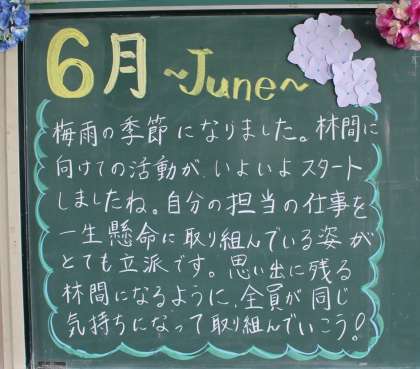 6月 ~June~
梅雨の季節になりました。林間に
向けての活動が、いよいよスタート
しましたね。自分の担当の仕事を
一生懸命に取り組んでいる姿が
とても立派です。思い出に残る
林間になるように、全員が同じ
気持ちになって取り組んでいこう!